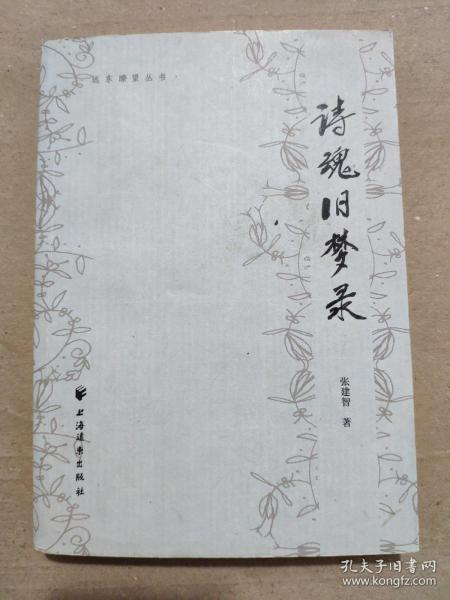 远东瞭望丛书
诗魂旧梦录
张建智 著
上海远东出版社
孔夫子旧书网
www.kongfz.com